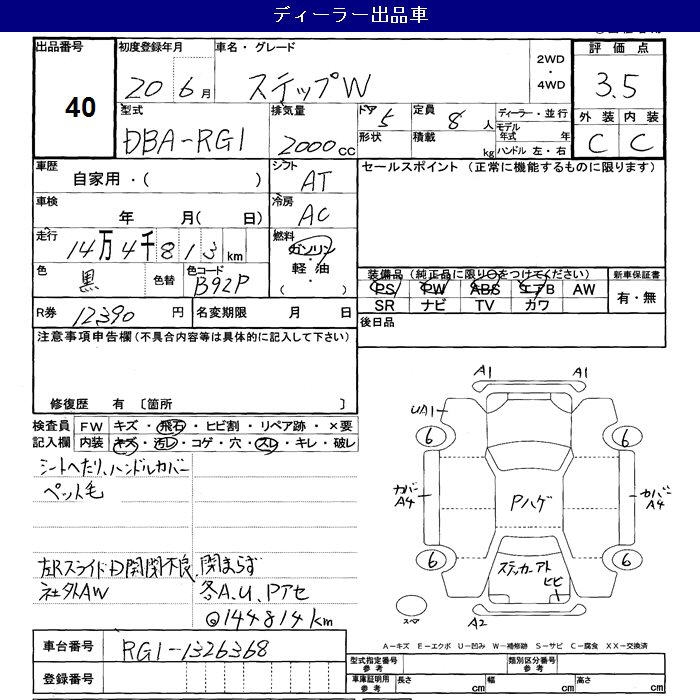 ディーラー出品車
出品番号
40
初度登録年月
20 6月
車名・グレード
ステップW
2WD
・
4WD
評価点
3.5
型式
DBA-RG1
排気量
2000cc
ドア
5
形状
定員
8人
積載
kg
ディーラー・並行
モデル
年式 年
ハンドル 左・右
外装 内装
C C
車歴
自家用・( )
シフト
AT
セールスポイント (正常に機能するものに限ります)
車検
年 月( 日)
冷房
AC
走行
14万4千813km
燃料
ガソリン
・
軽油
・
( )
色
黒
色替
色コード
B92P
装備品(純正品に限り○をつけてください)
PS PW ABS エアB AW
SR ナビ TV カワ
新車保証書
有・無
R券 12390円
名変期限 月 日
後日品
注意事項申告欄(不具合内容等は具体的に記入して下さい)
修復歴 有 〔箇所 〕
検査員
記入欄
FW キズ・飛石・ヒビ割・リペア跡・×要
内装 キズ・汚レ・コゲ・穴・スレ・キレ・破レ
シートへたり、ハンドルカバー
ペット毛
左Rスライド D開閉不良、閉まらず
社外AW 各A.U.Pアセ
@144814km
A1 A1
UA1
6 6
カバーA4
Pハゲ
カバーA4
6 6
ステッカーアト
ヒビ
スペア
A2
車台番号
RG1-1326368
登録番号
A-キズ E-エクボ U-凹み W-補修跡 S-サビ C-腐食 XX-交換済
型式指定番号
参考
類別区分番号
参考
車庫証明用
参考
長さ cm
幅 cm
高さ cm